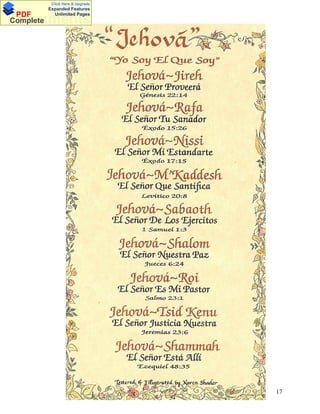 Click Here & Upgrade
Expanded Features
PDF
Unlimited Pages
Complete
"Jehová"
"Yo Soy El Que Soy"
Jehová~Jireh
El Señor Proveerá
Génesis 22:14
Jehová~Rafa
El Señor Tu Sanador
Éxodo 15:26
Jehová~Nissi
El Señor Mi Estandarte
Éxodo 17:15
Jehová~M'Kaddesh
El Señor Que Santifica
Levítico 20:8
Jehová~Sabaoth
El Señor De Los Ejercitos
1 Samuel 1:3
Jehová~Shalom
El Señor Nuestra Paz
Jueces 6:24
Jehová~Roi
El Señor Es Mi Pastor
Salmo 23:1
Jehová~Tsid Kenu
El Señor Justicia Nuestra
Jeremías 23:6
Jehová~Shammah
El Señor Está Allí
Ezequiel 48:35
Lettered & Illustrated by Karen Shader
17